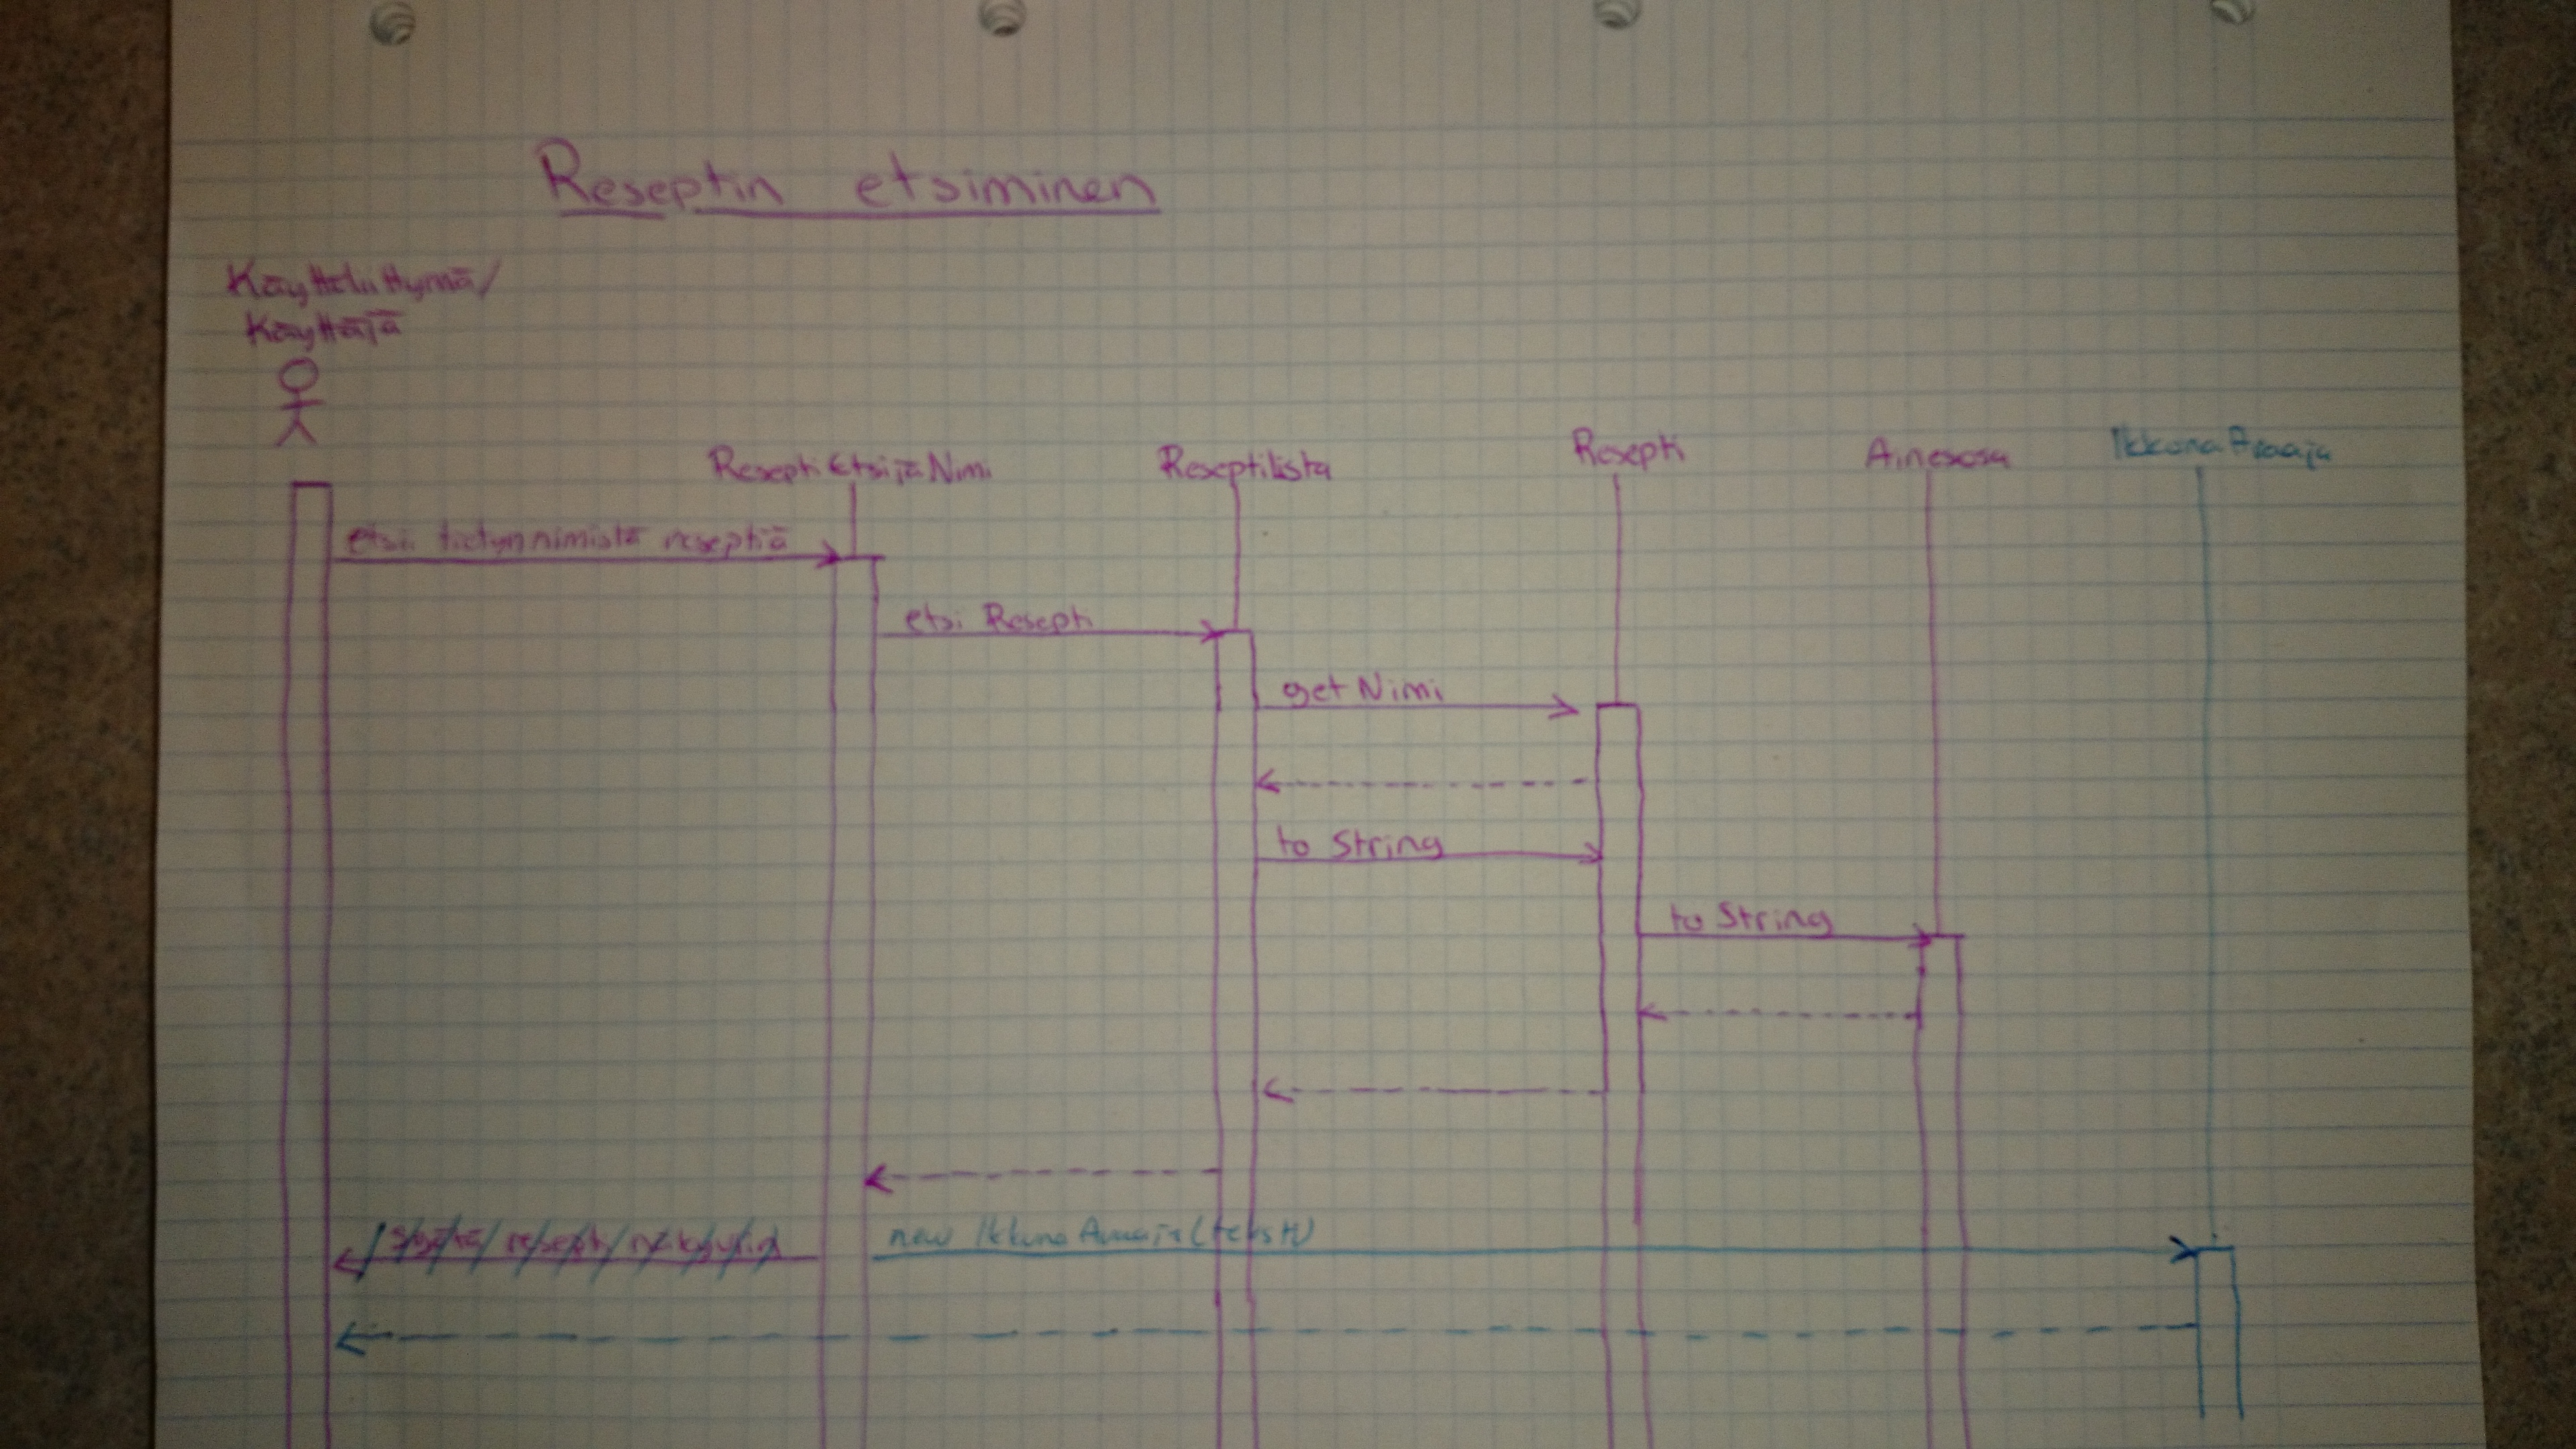 Reseptin etsiminen
Käyttöliittymä/
Käyttäjä
ReseptiEtsijäNimi
Reseptilista
Resepti
Ainesosa
IkkunaAvaaja
etsii tietynnimistä reseptiä
etsi Resepti
get Nimi
to String
to String
new IkkunaAvaaja(teksti)